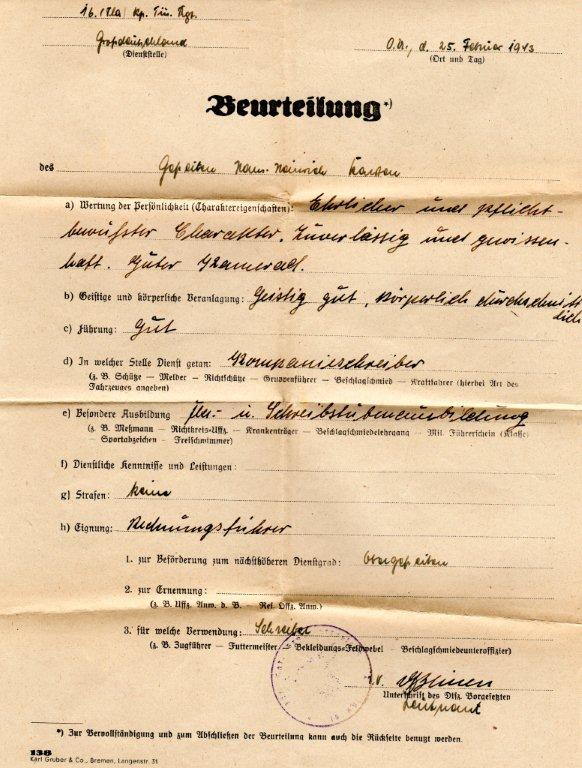 16. (Fla) Kp. Inf. Rgt.
Großdeutschland
(Dienststelle)
O.U., d. 25. Februar 1943
(Ort und Tag)
Beurteilung*)
des Gefreiten Hans-Heinrich
a) Wertung der Persönlichkeit (Charaktereigenschaften): Ehrlicher und pflicht-
bewußter Charakter. Zuverlässig und gewissen-
haft. Guter Kamerad.
b) Geistige und körperliche Veranlagung: Geistig gut, körperlich durchschnitt
lich
c) Führung: Gut
d) In welcher Stelle Dienst getan: Kompanieschreiber
(z. B. Schütze — Melder — Richtschütze — Gruppenführer — Beschlagschmied — Kraftfahrer (hierbei Art des
Fahrzeuges angeben)
e) Besondere Ausbildung Inf.- u. Schreibstubenausbildung
(z. B. Meßmann — Richtkreis-Uffz. — Krankenträger — Beschlagschmiedelehrgang — Mil. Führerschein (Klasse)
— Sportabzeichen — Freischwimmer)
f) Dienstliche Kenntnisse und Leistungen:
g) Strafen: keine
h) Eignung: Rechnungsführer
1. zur Beförderung zum nächsthöheren Dienstgrad: Obergefreiten
2. zur Ernennung:
(z. B. Uffz. Anw. d. B. — Res. Offz. Anw.)
3. für welche Verwendung: Schreiber
(z. B. Zugführer — Futtermeister — Bekleidungs-Feldwebel — Beschlagschmiedeunteroffizier)
Unterschrift des Disz. Vorgesetzten
Leutnant
*) Zur Vervollständigung und zum Abschließen der Beurteilung kann auch die Rückseite benutzt werden.
138
Karl Gruber & Co., Bremen, Langenstr. 31